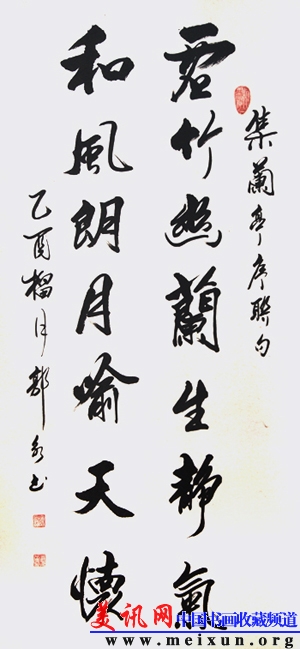 集蘭亭序聯句
虛竹幽蘭生靜氣
和風朗月喻天懷
乙酉榴月
美讯网 中国书画收藏频道
www.meixun.org